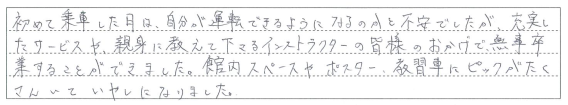 初めて乗車した日は、自分が運転できるようになるのかと不安でしたが、充実し
たサービスや、親身に教えて下さるインストラクターの皆様のおかげで、無事卒
業することができました。館内スペースやポスター、教習車にピックがたく
さんいていやしになりました。